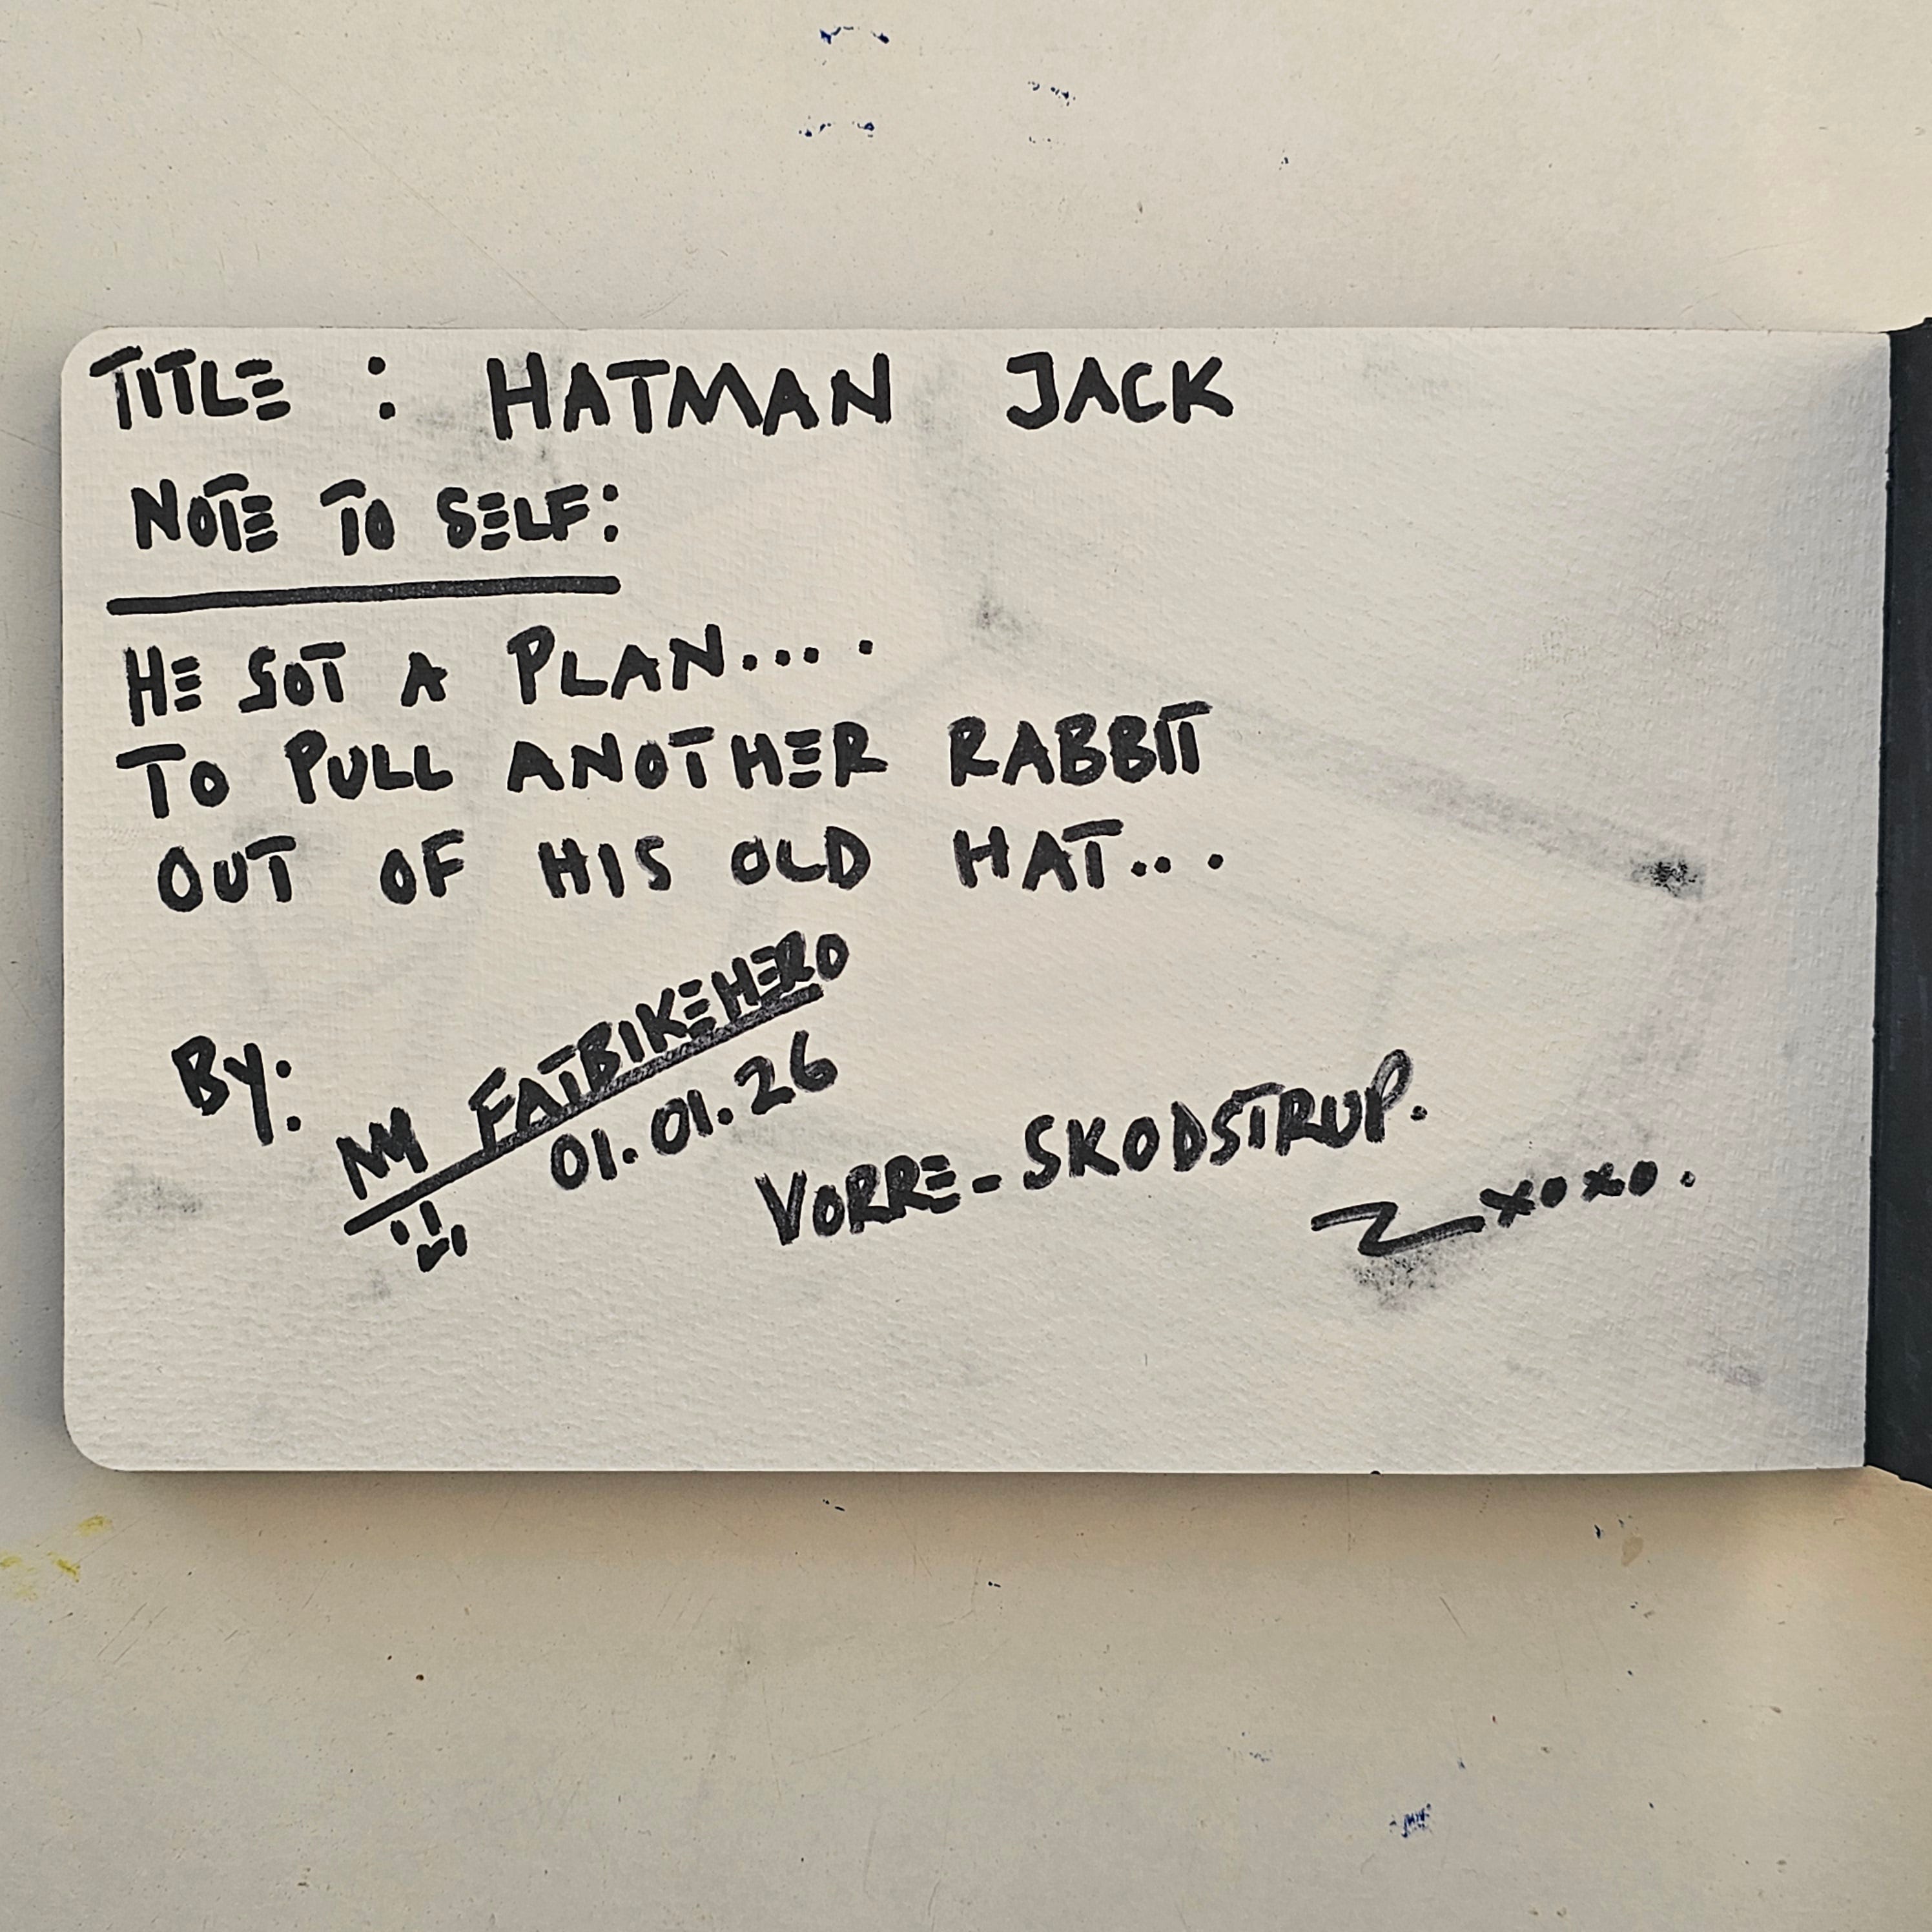 TITLE : HATMAN JACK
NOTE TO SELF:
HE GOT A PLAN....
TO PULL ANOTHER RABBIT
OUT OF HIS OLD HAT...
By: FATBIKEHERO
01.01.26
VORRE-SKODSTRUP.
xoxo.